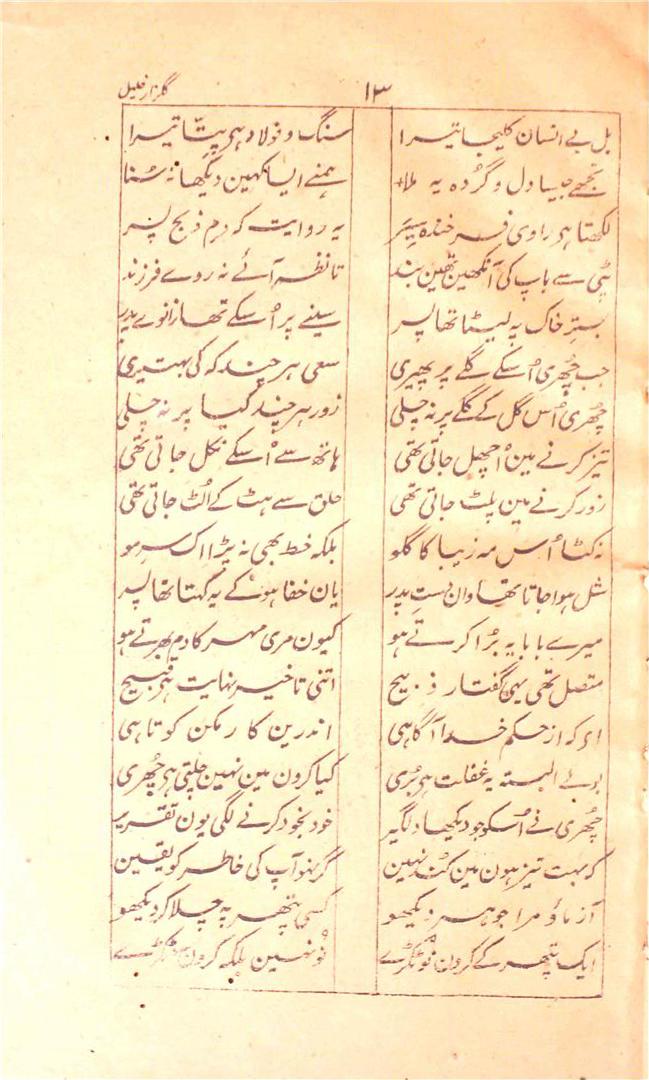 گلزار خلیل ۱۳
بل بے انسان کلیجا تیرا سنگ و فولاد ہی پتّا تیرا
تجھے جیسا دل و گُردہ یہ ملا ہمنے ایسا کہین دیکھا نہ سُنا
لکھتا ہی راوی فرخندہ سِیَر یہ روایت کہ دم ذبح پسر
پٹی سے باپ کی آنکھین تھین بند تا نظر آئے نہ روے فرزند
بسترِ خاک پہ لیٹا تھا پسر سینے پر اُسکے تھا زانوے پدر
جب چُھری اُسکے گلے پر پھیری سعی ہر چند کہ کی بہتیری
چُھری اُس گل کے گلے پر نہ چلی زور ہر چند کیا پر نہ چلی
تیز کرنے مین اُچھل جاتی تھی ہاتھ سے اُسکے نکل جاتی تھی
زور کرنے مین پلٹ جاتی تھی حلق سے ہٹ کے اُلٹ جاتی تھی
نہ کٹا اُس مہ زیبا کا گلو بلکہ خط بھی نہ پڑا اک سرِ مو
شل ہوا جاتا تھا وان دستِ پدر یان خفا ہوکے یہ کہتا تھا پسر
میرے بابا یہ بُرا کرتے ہو کیون مری مہر کا دم بھرتے ہو
متصل تھی یہی گفتار ذبیح اتنی تاخیر نہایت ہی قبیح
ای کہ از حکم خدا آگاہی اندرین کار مکن کوتاہی
بولے البتہ یہ غفلت ہی بُری کیا کرون مین نہین چلتی ہی چُھری
چُھری نے اُسکو جو دیکھا دلگیر خود بخود کرنے لگی یون تقریر
کہ بہت تیز ہون مین کُند نہین گر نہو آپ کی خاطر کو یقین
آزماؤ مرا جوہر دیکھو کسی پتھر پہ چلا کر دیکھو
ایک پتھر کے کرون نو ٹکڑے نو نہین بلکہ کرون ٹکڑے